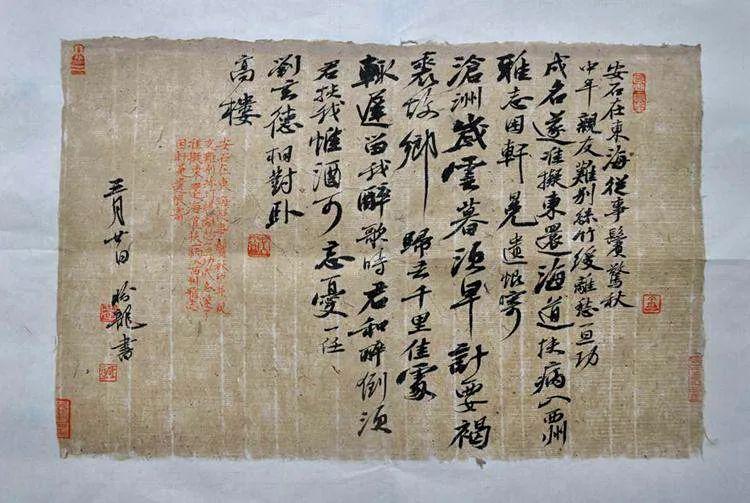 安石在東海從事鬢驚秋
中年親友難別絲竹緩離愁一旦功
成名遂准擬東還海道扶病入西州
雅志困軒冕遺恨寄
滄洲歲雲暮須早計要褐
裘故鄉歸去千里佳處
輒遲留我醉歌時君和醉倒須
君扶我惟酒可忘憂一任
劉玄德相對臥
高樓
安石在東海從事鬢驚秋中年親
友難別絲竹緩離愁一旦功成名遂
准擬東還海道扶病入西州雅志
困軒冕遺恨寄
五月廿日書